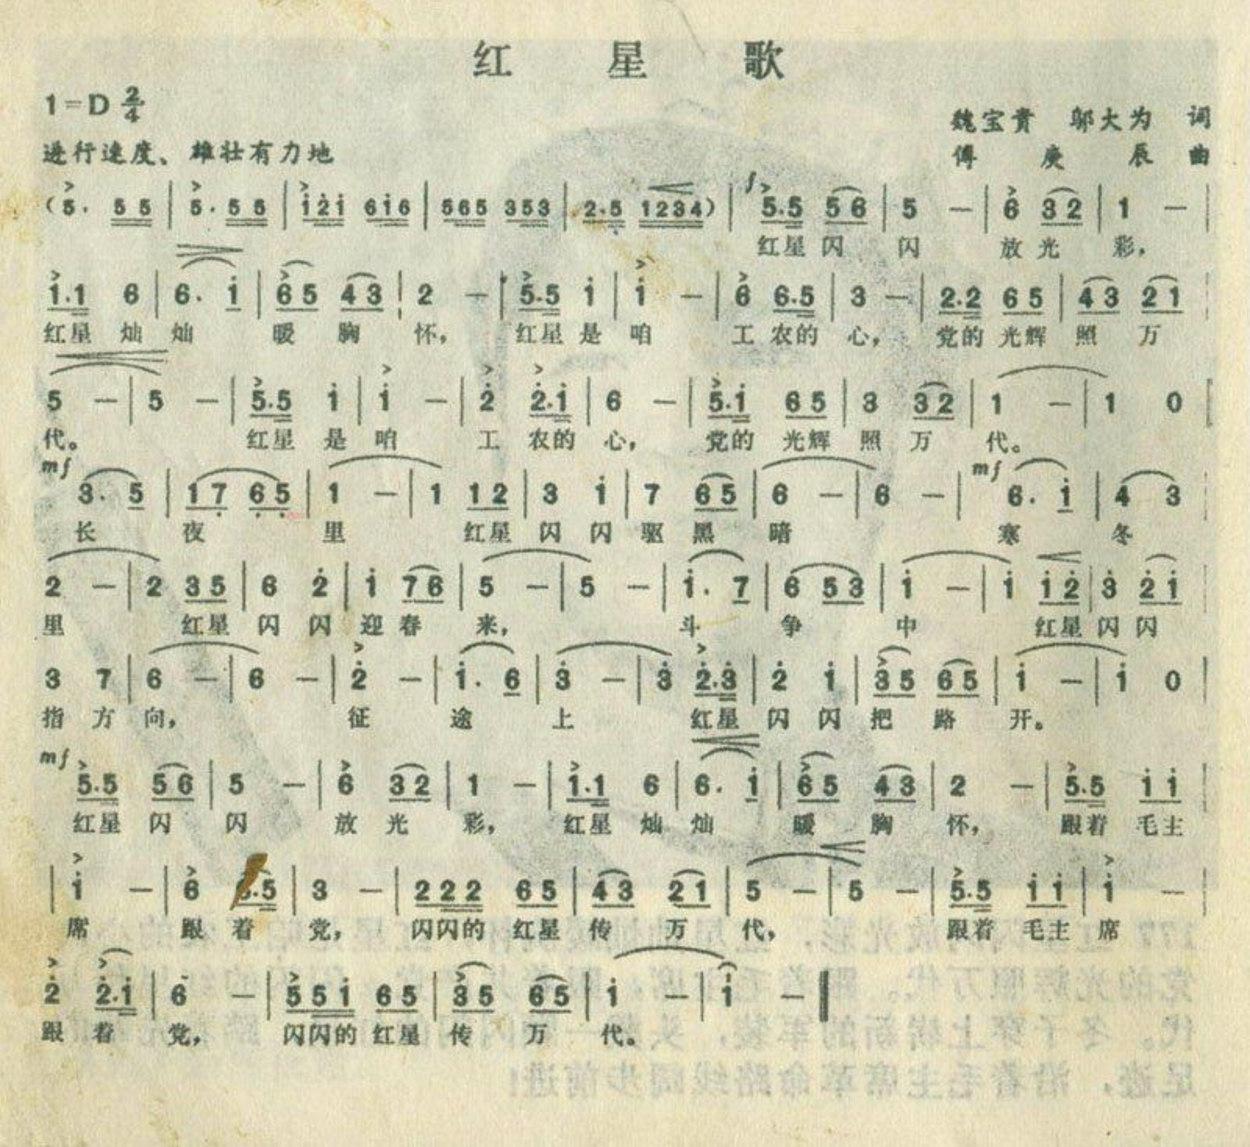 红星歌
1=D 2/4
魏宝贵 邬大为 词
进行速度、雄壮有力地
傅庚辰 曲
(5. 5 5 | 5. 5 5 | i 2 i 6 i 6 | 5 6 5 3 5 3 | 2.5 1 2 3 4) | f 5.5 5 6 | 5 — | 6 3 2 | 1 — |
红星 闪 闪 放 光 彩,
1.1 6 | 6. i | 6 5 4 3 | 2 — | 5.5 i | i — | 6 6.5 | 3 — | 2.2 6 5 | 4 3 2 1 |
红星 灿 灿 暖 胸 怀, 红星 是 咱 工 农的 心, 党的 光辉 照 万
5 — | 5 — | 5.5 i | i — | 2 2.i | 6 — | 5.i 6 5 | 3 3 2 | 1 — | 1 0 |
代。 红星 是 咱 工 农的 心, 党的 光辉 照 万 代。
mf mf
3. 5 | 1 7 6 5 | 1 — | 1 1 2 | 3 i | 7 6 5 | 6 — | 6 — | 6. i | 4 3
长 夜 里 红星 闪 闪 驱 黑 暗 寒 冬
2 — | 2 3 5 | 6 2 | i 7 6 | 5 — | 5 — | i. 7 | 6 5 3 | i — | i i 2 | 3 2 i
里 红星 闪 闪 迎 春 来, 斗 争 中 红星 闪 闪
3 7 | 6 — | 6 — | 2 — | i. 6 | 3 — | 3 2.3 | 2 i | 3 5 6 5 | i — | i 0 |
指 方 向, 征 途 上 红星 闪 闪 把 路 开。
mf
5.5 5 6 | 5 — | 6 3 2 | 1 — | 1.1 6 | 6. i | 6 5 4 3 | 2 — | 5.5 i i
红星 闪 闪 放 光 彩, 红星 灿 灿 暖 胸 怀, 跟着 毛主
| i — | 6 6.5 | 3 — | 2 2 2 6 5 | 4 3 2 1 | 5 — | 5 — | 5.5 i i | i —
席 跟 着 党, 闪闪的 红星 传 万 代, 跟着 毛主 席
2 2.i | 6 — | 5 5 i 6 5 | 3 5 6 5 | i — | i — ‖
跟 着 党, 闪闪的 红星 传 万 代。